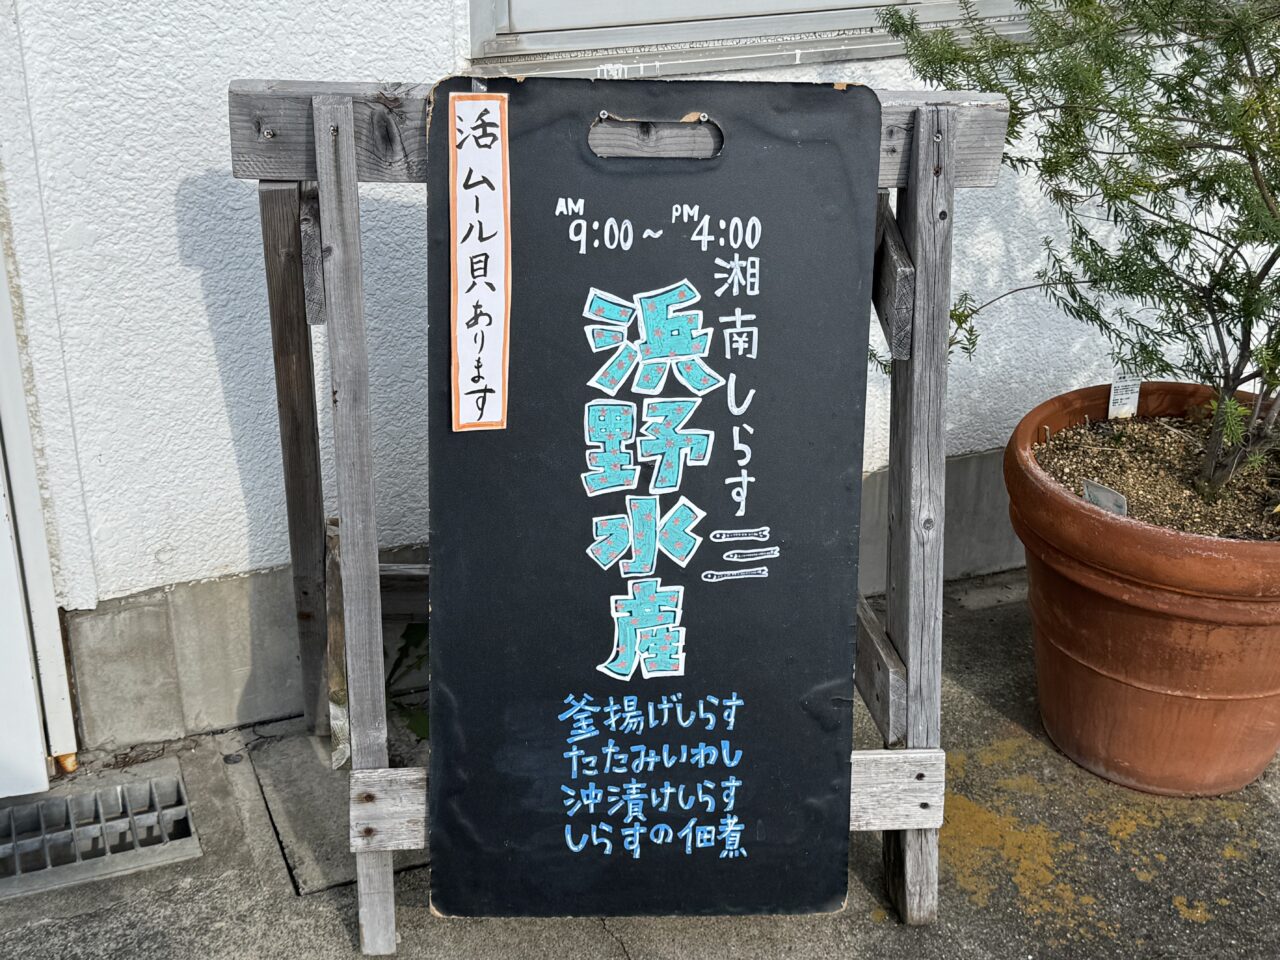 活ムール貝あります
AM 9:00～PM 4:00
湘南しらす
浜野水産
釜揚げしらす
たたみいわし
沖漬けしらす
しらすの佃煮